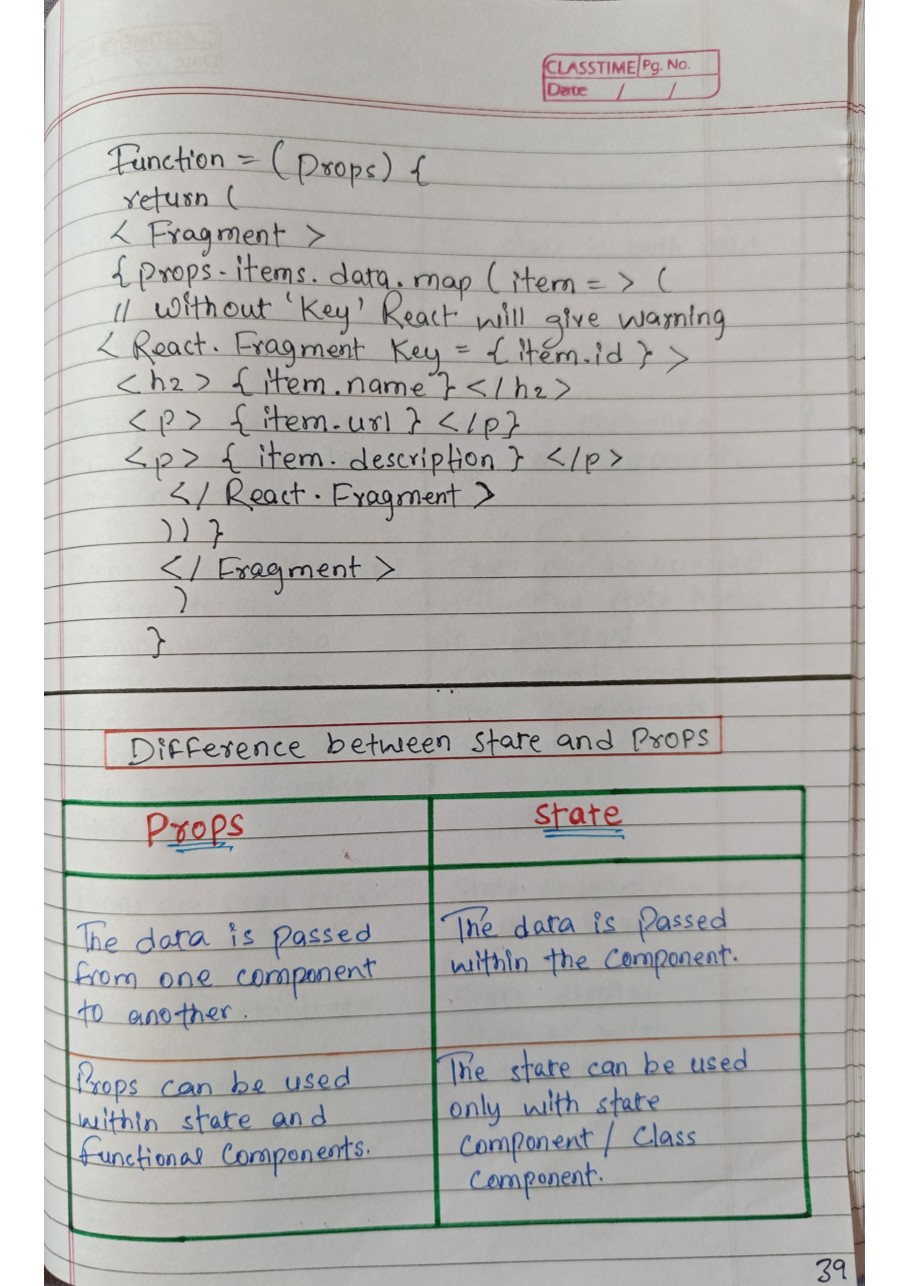 CLASSTIME Pg. No.
Date / /
Function = (props) {
return (
< Fragment >
{ props.items.data.map ( item = > (
// without 'Key' React will give warning
< React. Fragment Key = { item.id } >
<h2> { item.name } </h2>
<p> { item.url } </p}
<p> { item. description } </p>
</ React. Fragment >
)) }
</ Fragment >
)
}
Difference between state and Props
Props
State
The data is passed
from one component
to another.
The data is Passed
within the Component.
Props can be used
within state and
functional Components.
The state can be used
only with state
Component / Class
Component.
39